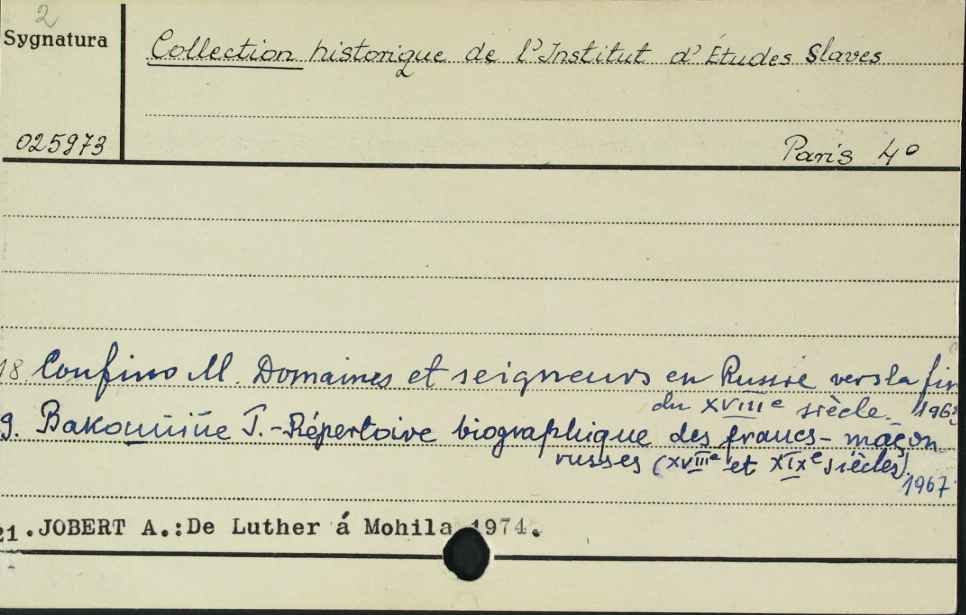 2
Sygnatura
Collection historique de l'Institut d'Études Slaves
025973
Paris 4°
18. Confino M. Domaines et seigneurs en Russie vers la fin
du XVIIIe siècle. 196
9. Bakounine T. - Répertoire biographique des francs-maçon
russes (XVIIIe et XIXe siècles).
1967
21. JOBERT A.: De Luther á Mohila 1974.